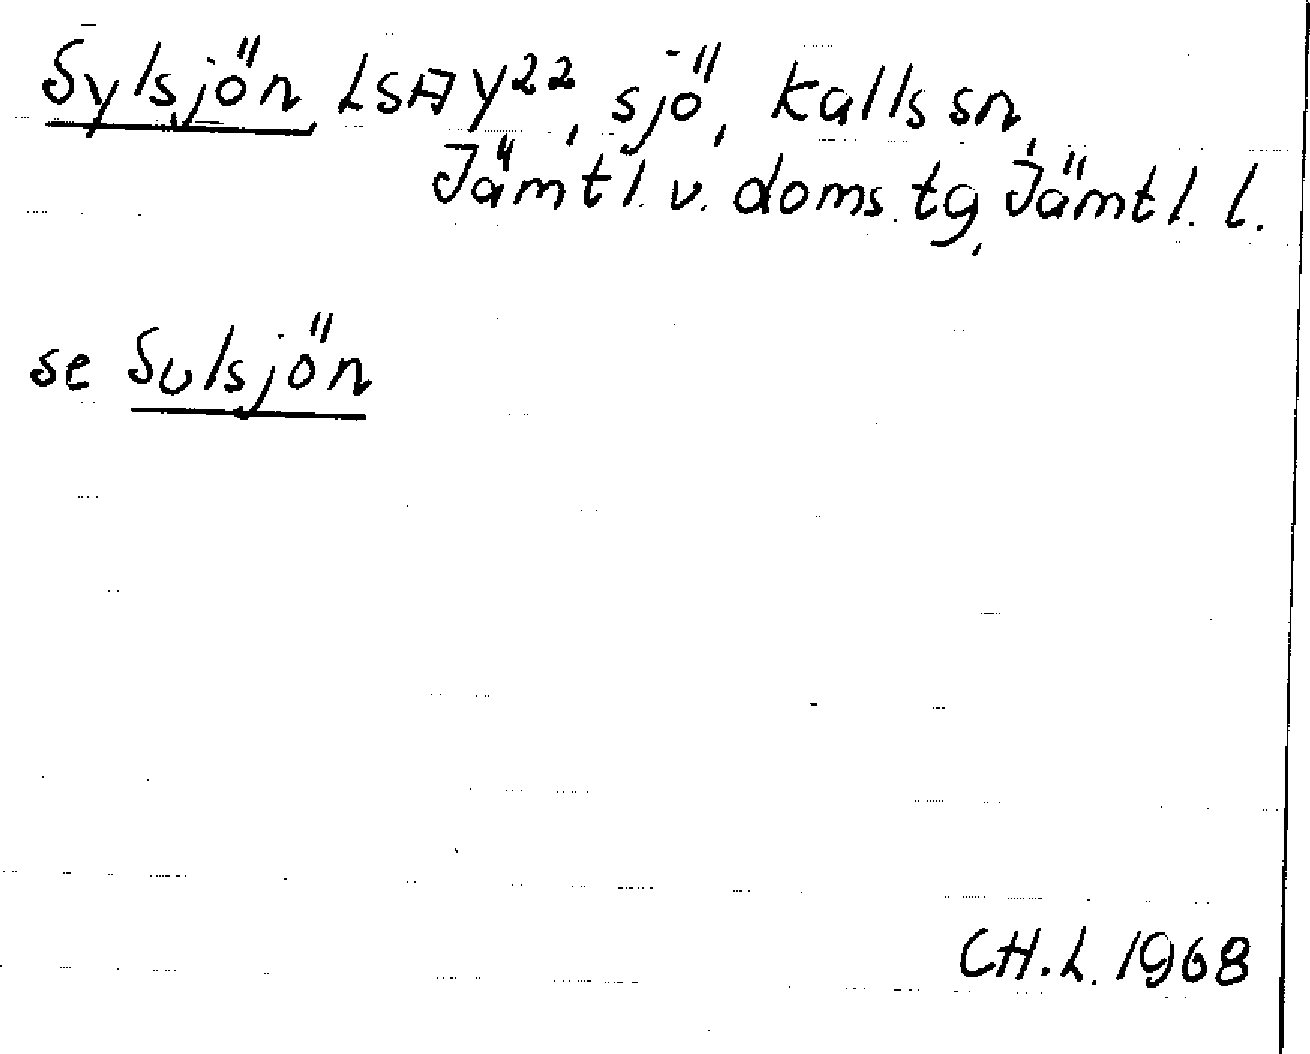 Sylsjön, LSA Y22, sjö, Kalls sn,
Jämtl. v. doms. tg, Jämtl. l.
se Sulsjön
CH.L. 1968